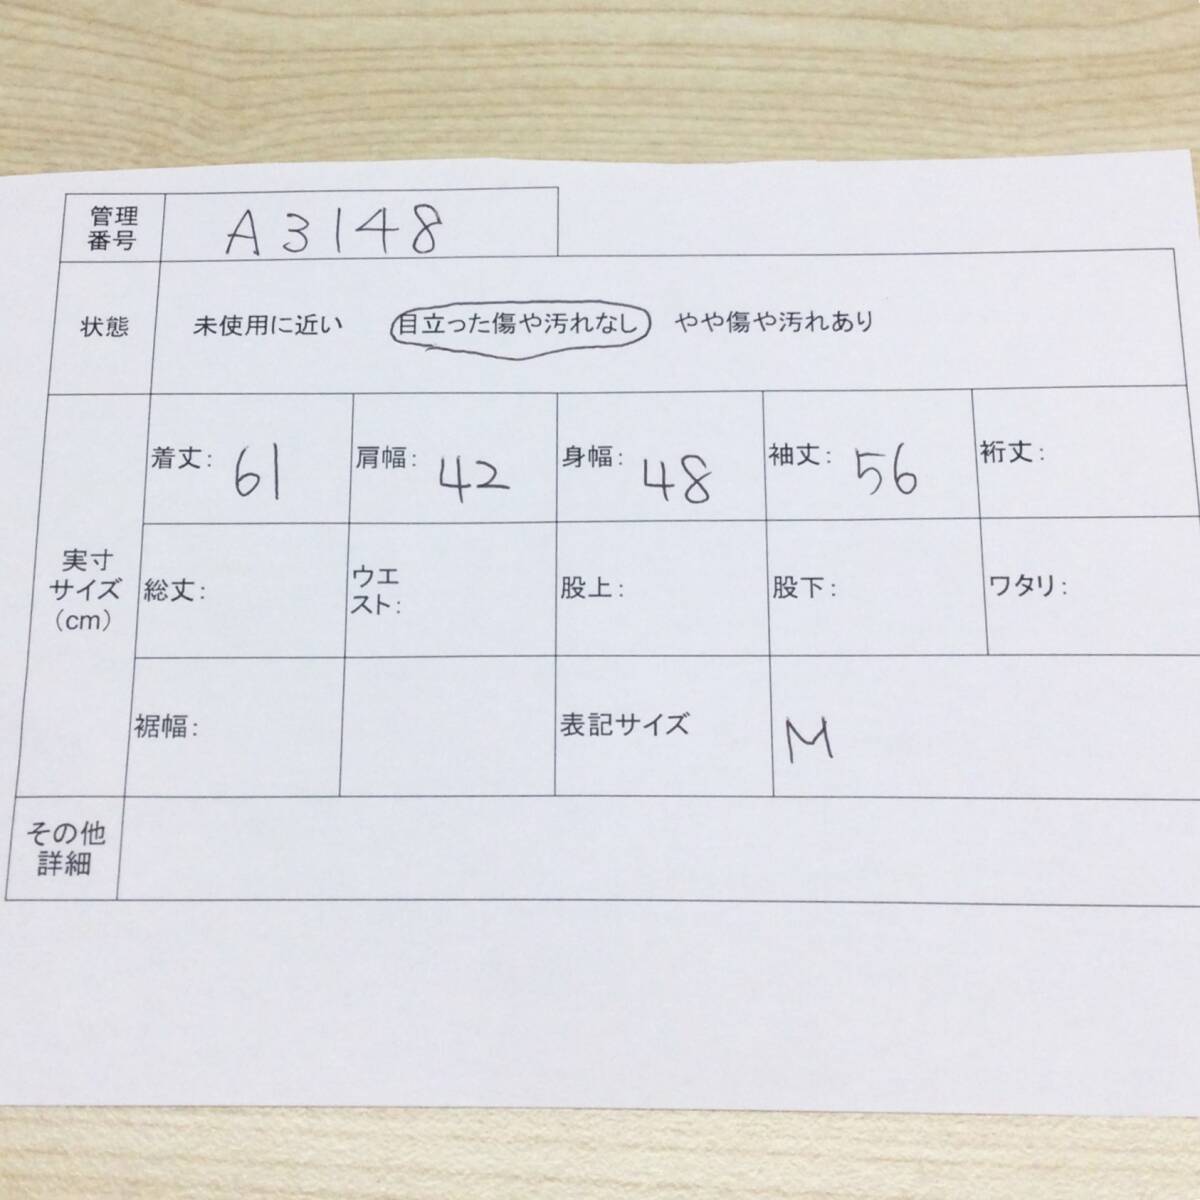 管理
番号
A3148
状態
未使用に近い 目立った傷や汚れなし やや傷や汚れあり
実寸
サイズ
(cm)
着丈: 61
肩幅: 42
身幅: 48
袖丈: 56
裄丈:
総丈:
ウエ
スト:
股上:
股下:
ワタリ:
裾幅:
表記サイズ
M
その他
詳細